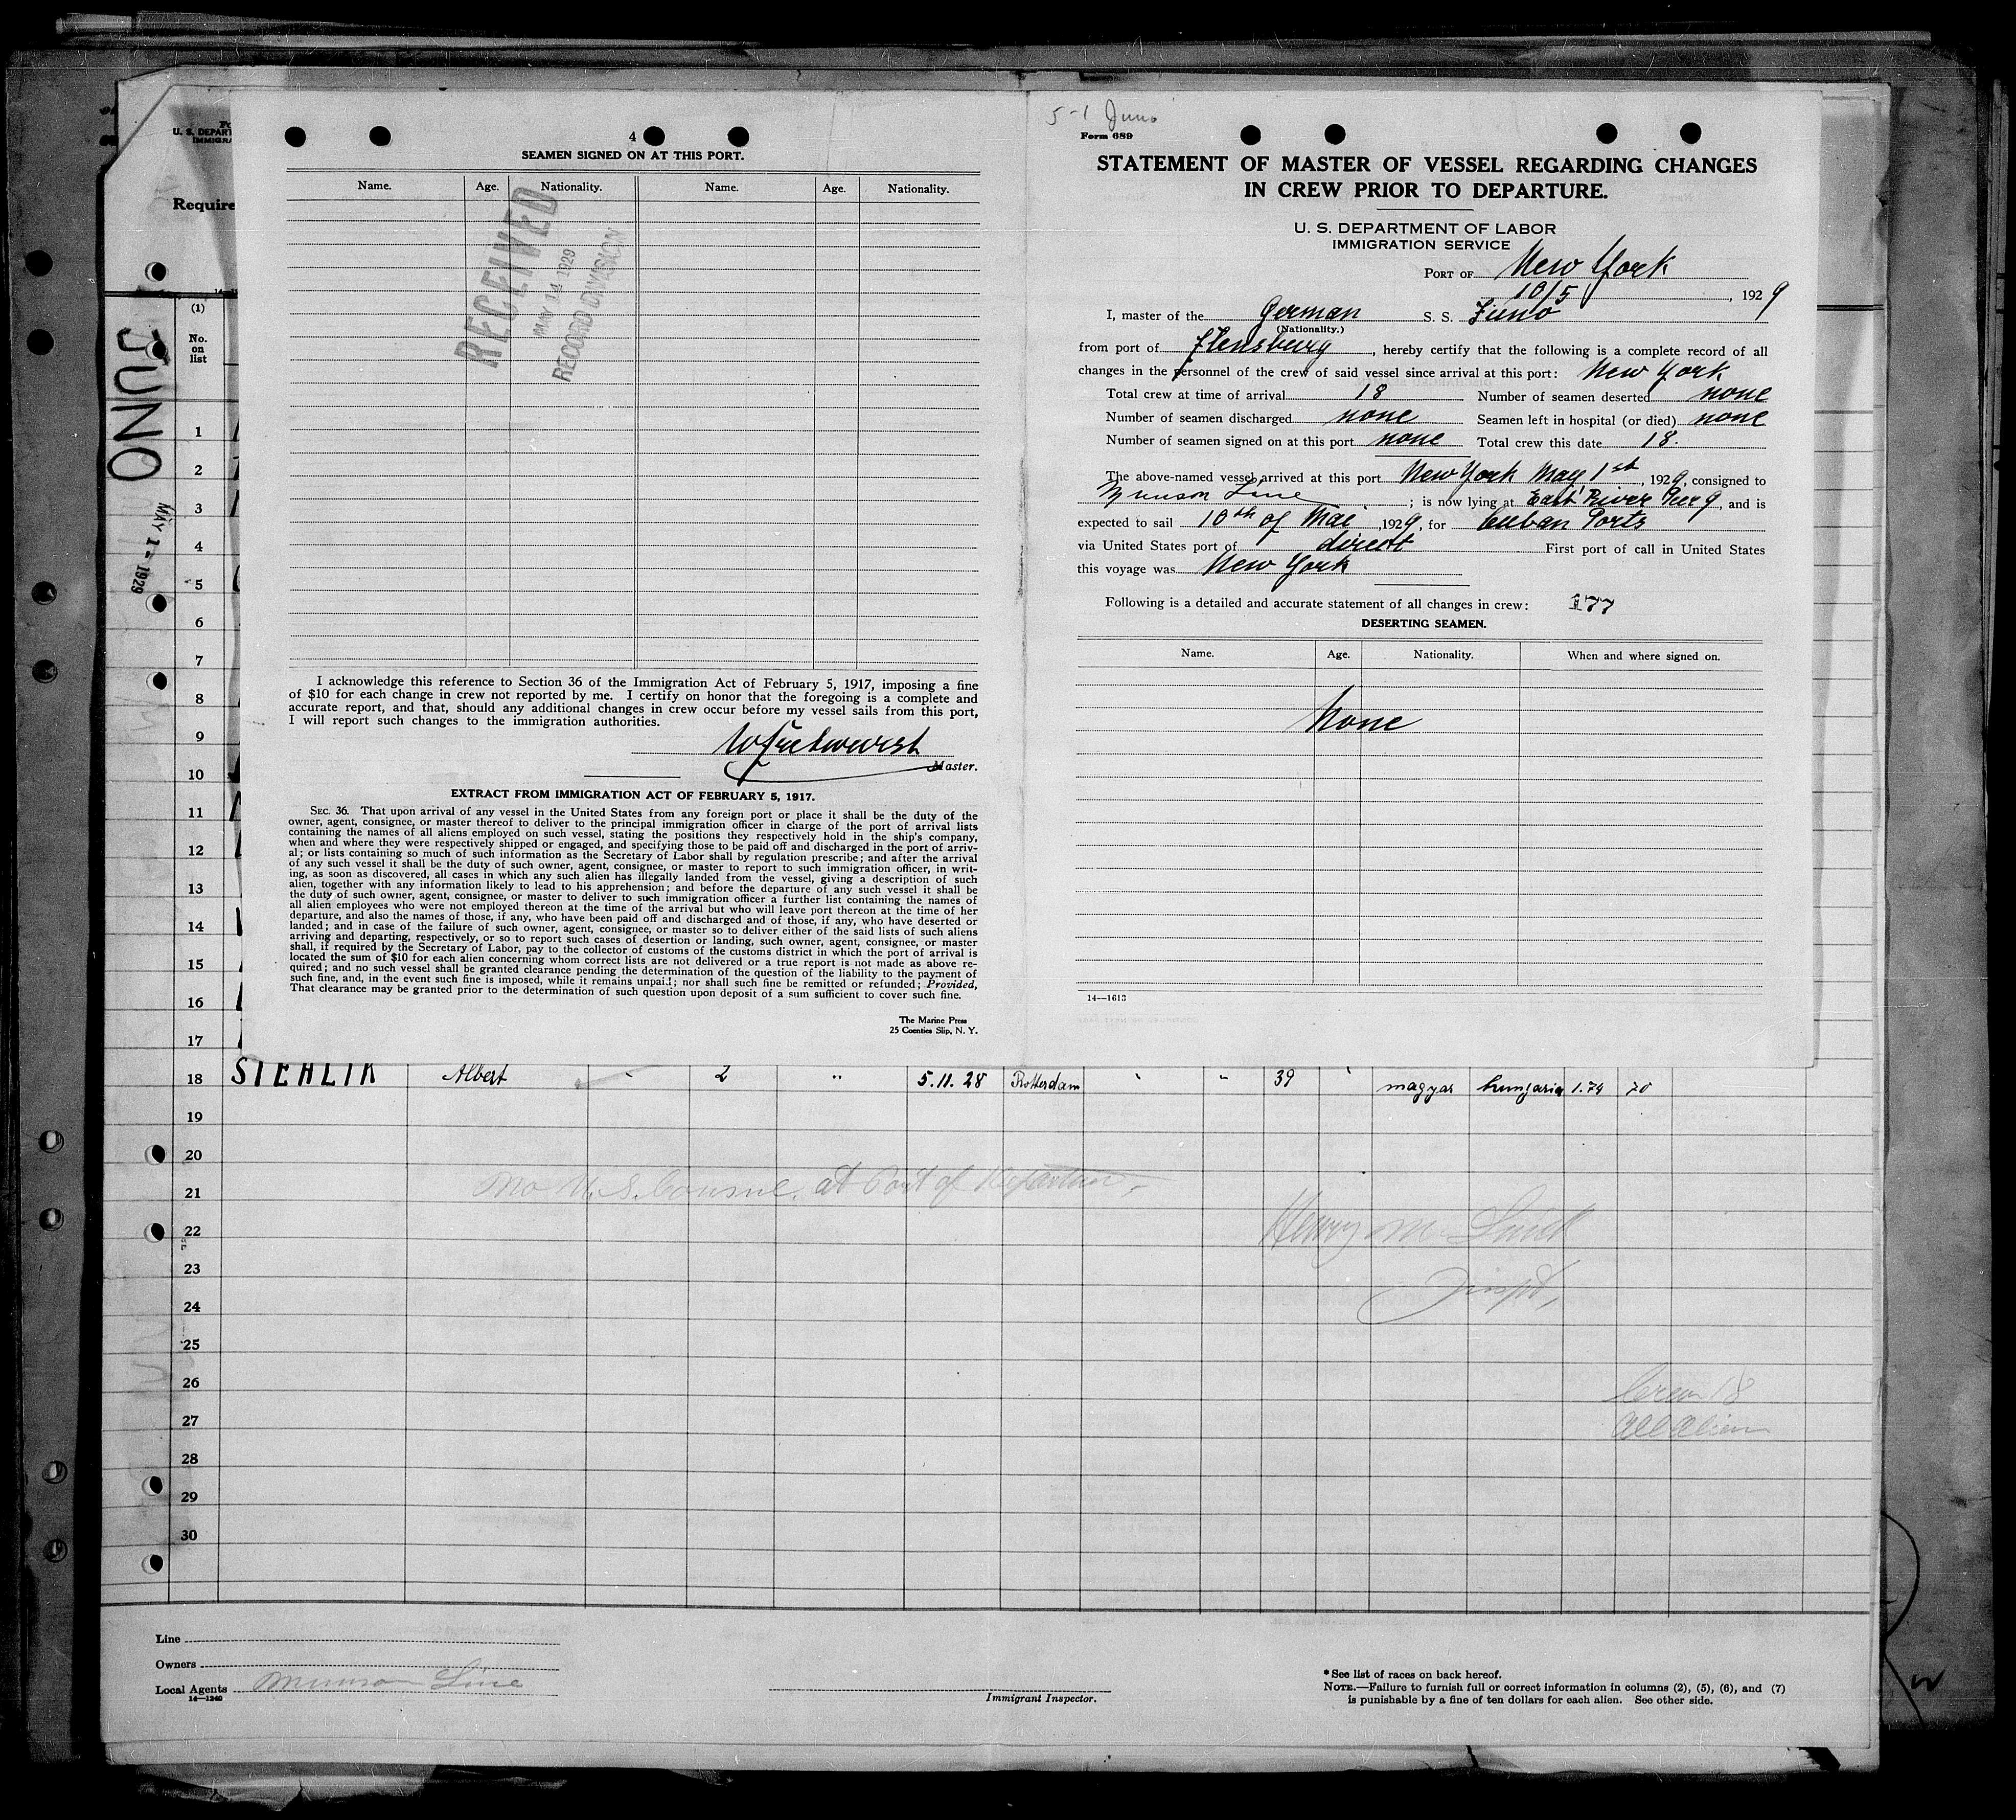 4
SEAMEN SIGNED ON AT THIS PORT.
Name. Age. Nationality. Name. Age. Nationality.
RECEIVED
MAY 14 1929
RECORD DIVISION
I acknowledge this reference to Section 36 of the Immigration Act of February 5, 1917, imposing a fine
of $10 for each change in crew not reported by me. I certify on honor that the foregoing is a complete and
accurate report, and that, should any additional changes in crew occur before my vessel sails from this port,
I will report such changes to the immigration authorities.
Master.
EXTRACT FROM IMMIGRATION ACT OF FEBRUARY 5, 1917.
SEC. 36. That upon arrival of any vessel in the United States from any foreign port or place it shall be the duty of the
owner, agent, consignee, or master thereof to deliver to the principal immigration officer in charge of the port of arrival lists
containing the names of all aliens employed on such vessel, stating the positions they respectively hold in the ship's company,
when and where they were respectively shipped or engaged, and specifying those to be paid off and discharged in the port of arriv-
al; or lists containing so much of such information as the Secretary of Labor shall by regulation prescribe; and after the arrival
of any such vessel it shall be the duty of such owner, agent, consignee, or master to report to such immigration officer, in writ-
ing, as soon as discovered, all cases in which any such alien has illegally landed from the vessel, giving a description of such
alien, together with any information likely to lead to his apprehension; and before the departure of any such vessel it shall be
the duty of such owner, agent, consignee, or master to deliver to such immigration officer a further list containing the names of
all alien employees who were not employed thereon at the time of the arrival but who will leave port thereon at the time of her
departure, and also the names of those, if any, who have been paid off and discharged and of those, if any, who have deserted or
landed; and in case of the failure of such owner, agent, consignee, or master so to deliver either of the said lists of such aliens
arriving and departing, respectively, or so to report such cases of desertion or landing, such owner, agent, consignee, or master
shall, if required by the Secretary of Labor, pay to the collector of customs of the customs district in which the port of arrival is
located the sum of $10 for each alien concerning whom correct lists are not delivered or a true report is not made as above re-
quired; and no such vessel shall be granted clearance pending the determination of the question of the liability to the payment of
such fine, and, in the event such fine is imposed, while it remains unpaid; nor shall such fine be remitted or refunded; Provided,
That clearance may be granted prior to the determination of such question upon deposit of a sum sufficient to cover such fine.
The Marine Press
25 Coenties Slip, N. Y.
5-1 Juno
Form 689
STATEMENT OF MASTER OF VESSEL REGARDING CHANGES
IN CREW PRIOR TO DEPARTURE.
U. S. DEPARTMENT OF LABOR
IMMIGRATION SERVICE
PORT OF New York
10/5, 1929
I, master of the German S. S. Juno
(Nationality.)
from port of Flensburg, hereby certify that the following is a complete record of all
changes in the personnel of the crew of said vessel since arrival at this port: New York
Total crew at time of arrival 18 Number of seamen deserted none
Number of seamen discharged none Seamen left in hospital (or died) none
Number of seamen signed on at this port none Total crew this date 18.
The above-named vessel arrived at this port New York May 1st, 1929, consigned to
Munson Line; is now lying at East River Pier 9, and is
expected to sail 10th of Mai, 1929, for Cuban Ports
via United States port of direct First port of call in United States
this voyage was New York
Following is a detailed and accurate statement of all changes in crew: 177
DESERTING SEAMEN.
Name. Age. Nationality. When and where signed on.
None
14—1613
U. S. DEPART
IMMIGRA
Require
(1)
No.
on
list
JUNO
MAY 1 - 1929
1
2
3
4
5
6
7
8
9
10
11
12
13
14
15
16
17
18 STEHLIK Albert " 2 " 5.11.28 Rotterdam " " 39 " magyar hungaria 1.74 70
19
20
21 No U.S. Consul at Port of Departure.
22 Henry M.
23 Inspt.
24
25
26 Crew 18
27 All Alien
28
29
30
Line
Owners
Local Agents Munson Line
14—1240
Immigrant Inspector.
*See list of races on back hereof.
NOTE.—Failure to furnish full or correct information in columns (2), (5), (6), and (7)
is punishable by a fine of ten dollars for each alien. See other side.